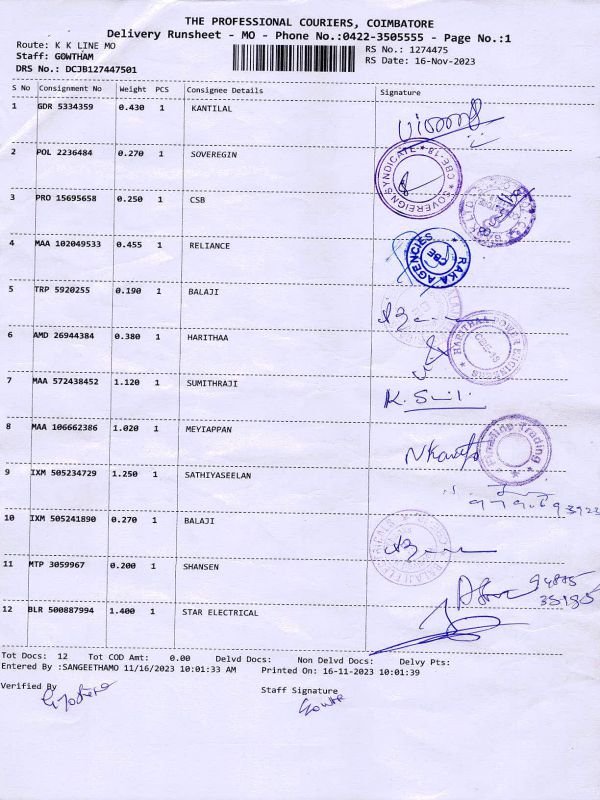 THE PROFESSIONAL COURIERS, COIMBATORE
Delivery Runsheet - MO - Phone No.:0422-3505555 - Page No.:1
Route: K K LINE MO RS No.: 1274475
Staff: GOWTHAM RS Date: 16-Nov-2023
DRS No.: DCJB127447501
S No Consignment No Weight PCS Consignee Details Signature
1 GDR 5334359 0.430 1 KANTILAL
2 POL 2236484 0.270 1 SOVEREGIN
SOVEREIGN SYNDICATE * CBE-18 *
3 PRO 15695658 0.250 1 CSB
4 MAA 102049533 0.455 1 RELIANCE
RAKA AGENCIES CBE
5 TRP 5920255 0.190 1 BALAJI
6 AMD 26944384 0.380 1 HARITHAA
7 MAA 572438452 1.120 1 SUMITHRAJI
K. Sunil.
8 MAA 106662386 1.020 1 MEYIAPPAN
Trading
9 IXM 505234729 1.250 1 SATHIYASEELAN
10 IXM 505241890 0.270 1 BALAJI
11 MTP 3059967 0.200 1 SHANSEN
94875
12 BLR 500887994 1.400 1 STAR ELECTRICAL
Tot Docs: 12 Tot COD Amt: 0.00 Delvd Docs: Non Delvd Docs: Delvy Pts:
Entered By :SANGEETHAMO 11/16/2023 10:01:33 AM Printed On: 16-11-2023 10:01:39
Verified By Staff Signature